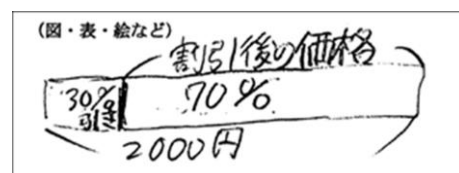 (図・表・絵など)
割引後の価格
30%
引き
70%
2000円